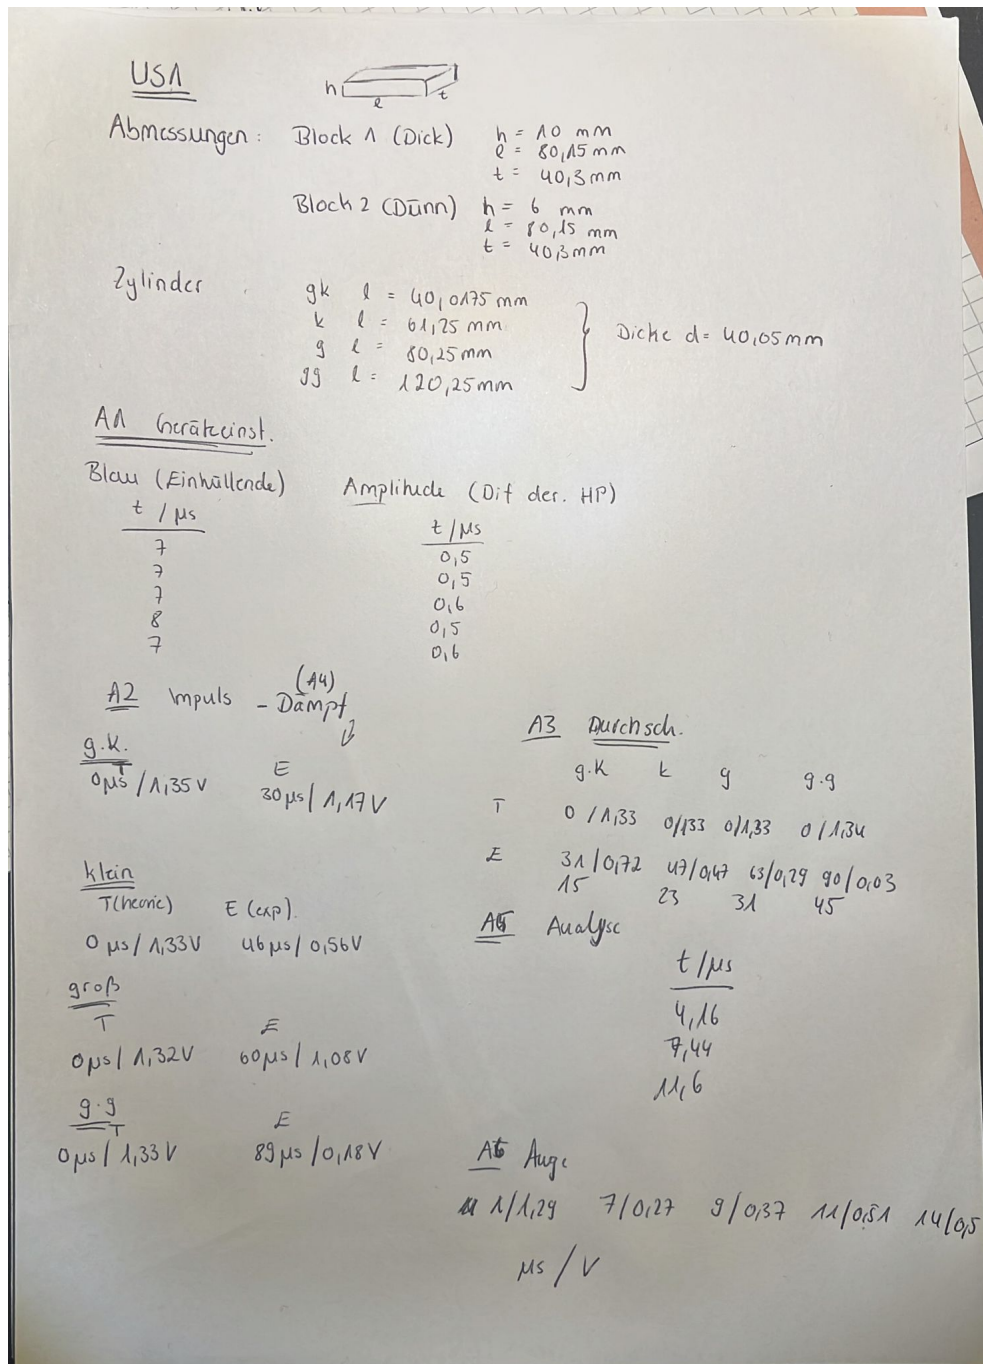 USA
h
l
t
Abmessungen: Block 1 (Dick) h = 10 mm
l = 80,15 mm
t = 40,3 mm
Block 2 (Dünn) h = 6 mm
l = 80,15 mm
t = 40,3 mm
Zylinder gk l = 40,0175 mm
k l = 61,25 mm
g l = 80,25 mm
gg l = 120,25 mm
Dicke d = 40,05 mm
A1 Geräteinst.
Blau (Einhüllende)
t / µs
7
7
7
8
7
Amplitude (Dif der. HP)
t / µs
0,5
0,5
0,6
0,5
0,6
A2 Impuls - Dämpf
(A4)
g.k.
T E
0µs / 1,35 V 30 µs / 1,17 V
klein
T(heorie) E (exp).
0 µs / 1,33 V 46 µs / 0,56 V
groß
T E
0 µs / 1,32 V 60 µs / 1,08 V
g.g
T E
0 µs / 1,33 V 89 µs / 0,18 V
A3 Durchsch.
g.k k g g.g
T 0 / 1,33 0/133 0/1,33 0 / 1,34
E 31 / 0,72 47/0,47 63/0,29 90 / 0,03
15 23 31 45
A5 Analyse
t / µs
4,16
7,44
11,6
A6 Auge
1/1,29 7/0,27 9/0,37 11/0,51 14/0,5
µs / V